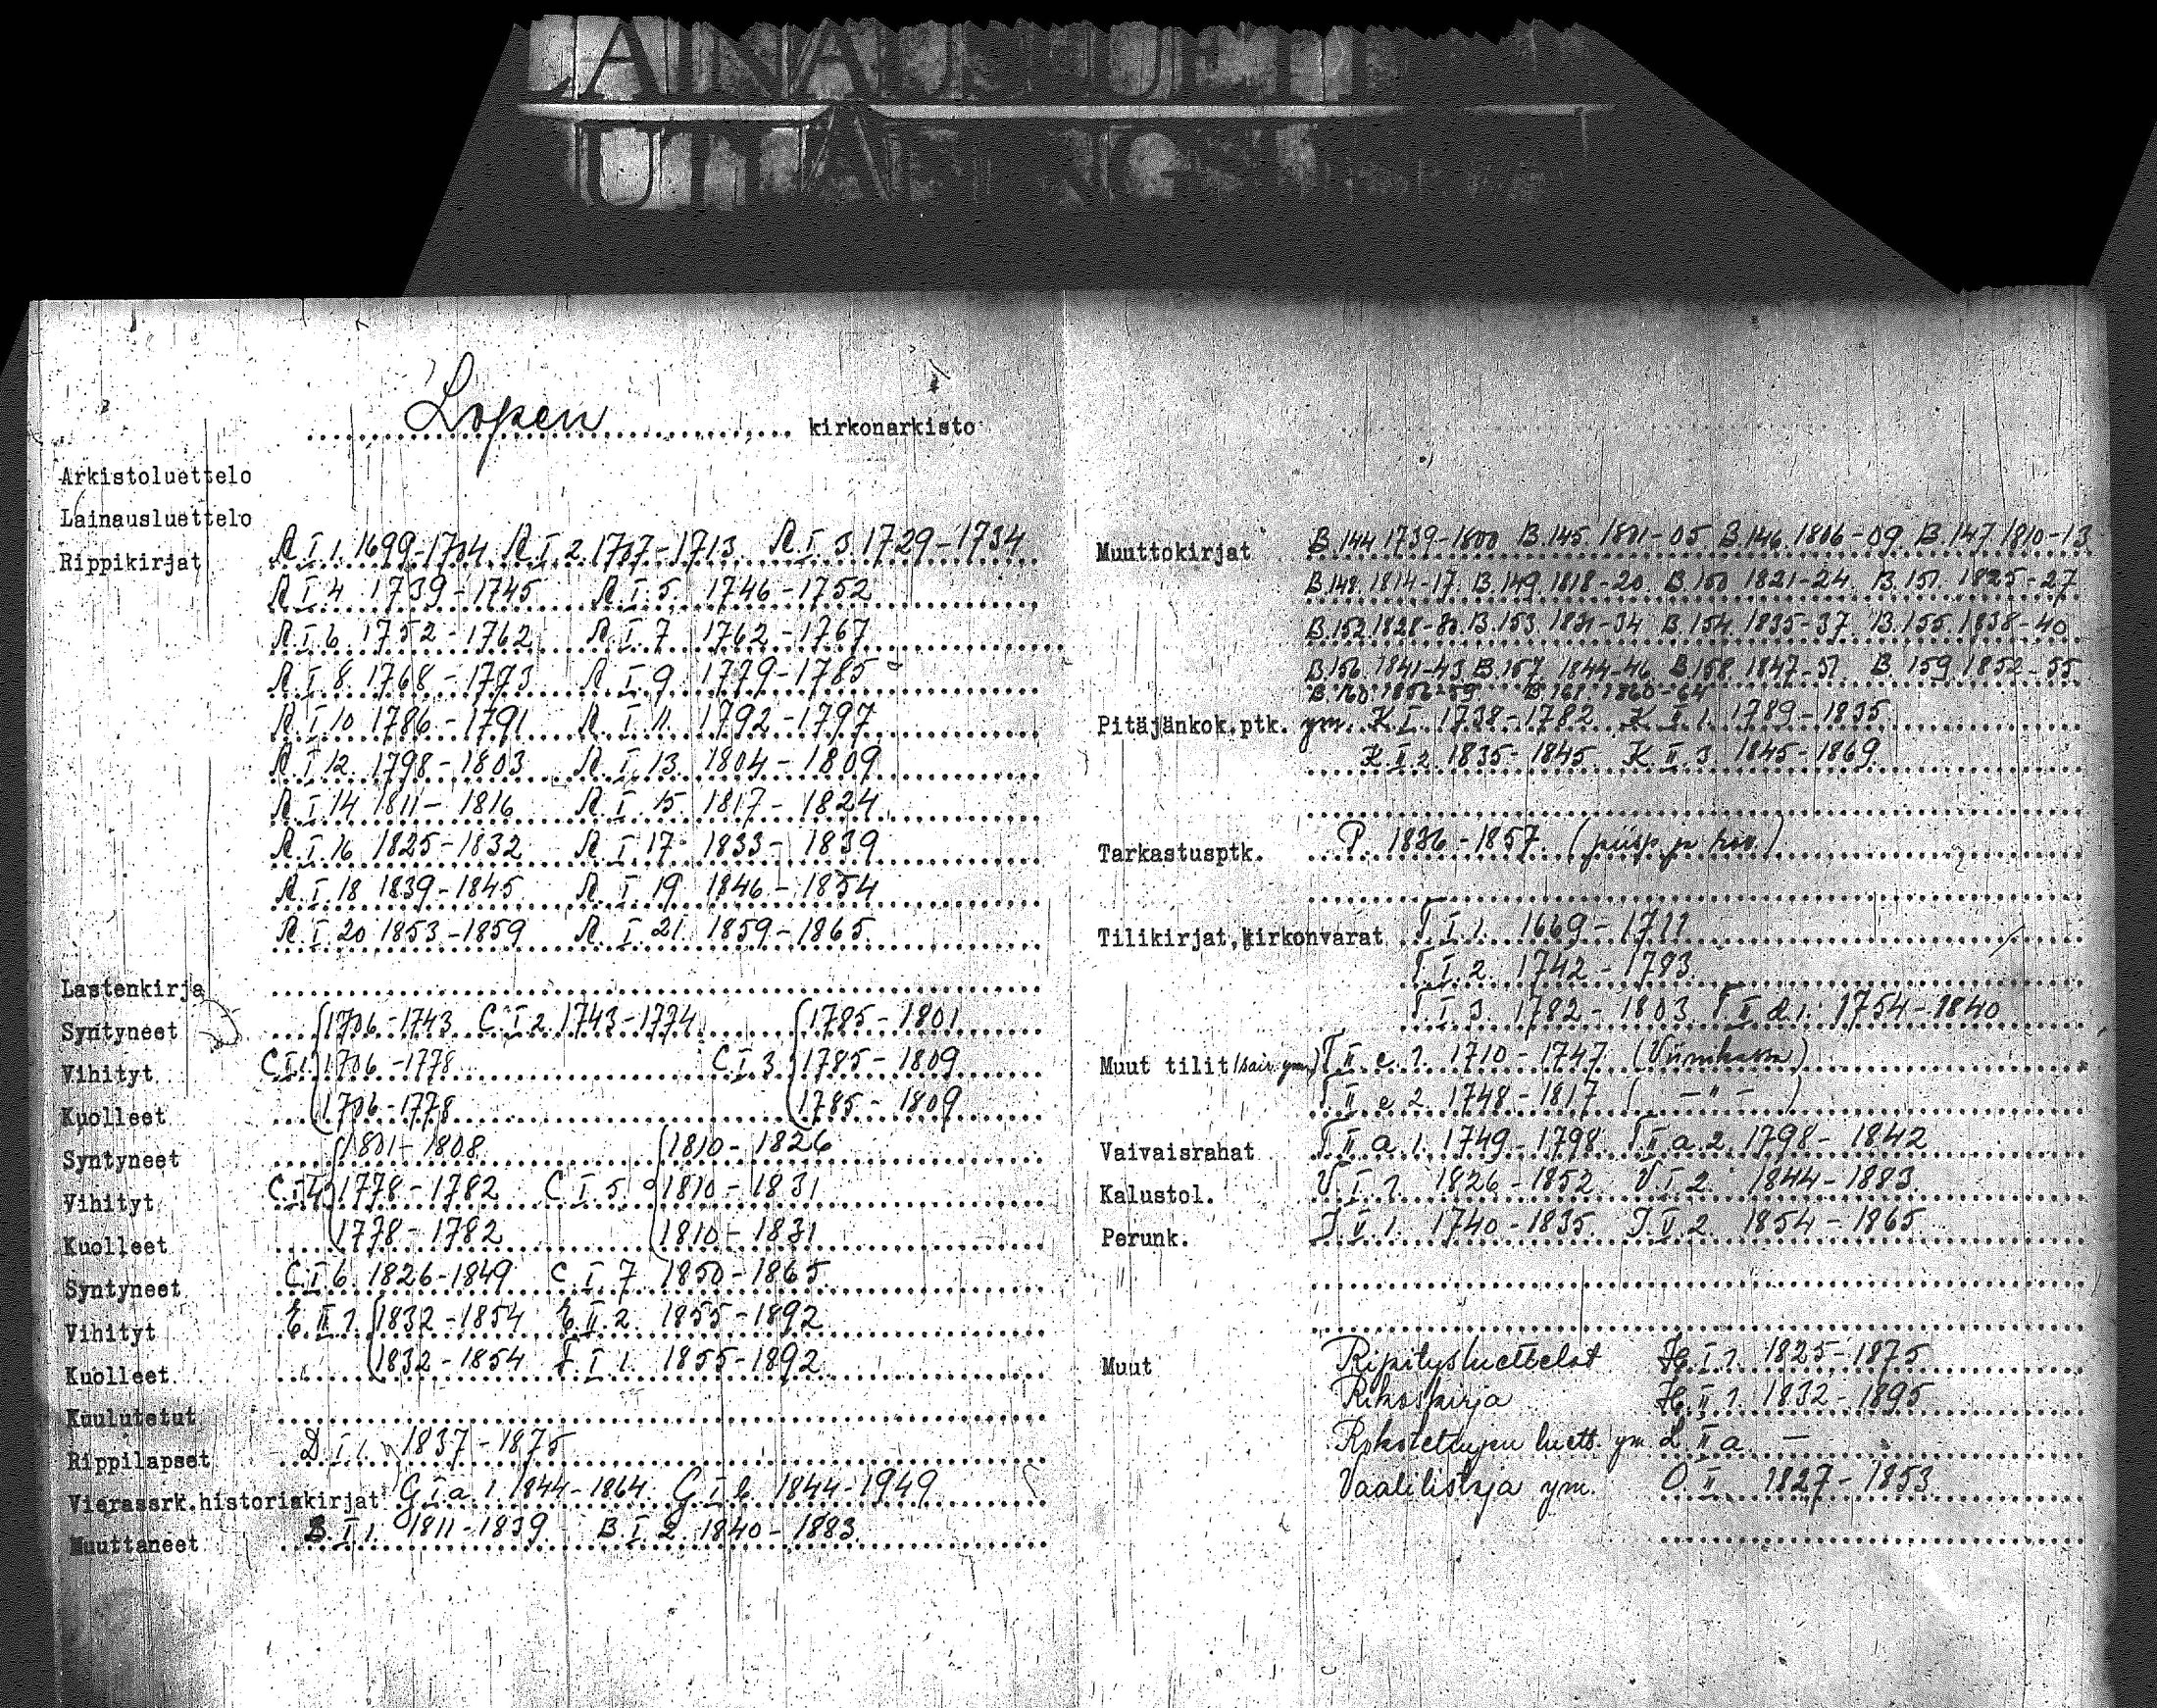 Lopen kirkonarkisto
Arkistoluettelo
Lainausluettelo
Rippikirjat R.I.1. 1699-1704 R.I.2. 1707-1713 R.I.3 1729-1734
R.I.4 1739-1745 R.I.5. 1746-1752
R.I.6 1752-1762 R.I.7 1762-1767
R.I.8. 1768-1773 R.I.9 1779-1785
R.I.10 1786-1791 R.I.11. 1792-1797
R.I.12. 1798-1803 R.I.13. 1804-1809
R.I.14 1811-1816 R.I.15 1817-1824
R.I.16 1825-1832 R.I.17 1833-1839
R.I.18 1839-1845 R.I.19 1846-1854
R.I.20 1853-1859 R.I.21. 1859-1865
Lastenkirja
Syntyneet 1706-1743 C.I.2 1743-1774 1785-1801
Vihityt C.I.1. 1706-1778 C.I.3 1785-1809
Kuolleet 1706-1778 1785-1809
Syntyneet 1801-1808 1810-1826
Vihityt C.I.4 1778-1782 C.I.5 1810-1831
Kuolleet 1778-1782 1810-1831
Syntyneet C.I.6. 1826-1849 C.I.7 1850-1865
Vihityt E.II.1. 1832-1854 E.II.2. 1855-1892
Kuolleet 1832-1854 F.I.1. 1855-1892
Kuulutetut
Rippilapset D.I.1. 1837-1875
Vierassrk.historiakirjat G.I.a.1. 1844-1864 G.I.b 1844-1949
Muuttaneet B.I.1. 1811-1839 B.I.2. 1840-1883
Muuttokirjat B.144 1739-1800 B.145. 1801-05 B.146. 1806-09 B.147 1810-13
B.148. 1814-17. B.149. 1818-20. B.150 1821-24. B.151. 1825-27
B.152. 1828-30. B.153. 1831-34 B.154. 1835-37 B.155. 1838-40
B.156. 1841-43 B.157. 1844-46. B.158. 1847-51 B.159 1852-55
B.160. 1856-59 B.161. 1860-64
Pitäjänkok.ptk. ym. K I. 1738-1782 K II.1. 1789-1835
K.II.2. 1835-1845 K II.3. 1845-1869
Tarkastusptk. P. 1836-1857 (piisp. ja rov.)
Tilikirjat,kirkonvarat T.I.1. 1669-1711
T.I.2. 1742-1783
T.I.3. 1782-1803 T.II.d.1. 1754-1840
Muut tilit (sair. ym.) T.II.c.1. 1710-1747 (Viinikassa)
T.II.c.2. 1748-1817 ( -"- )
Vaivaisrahat T.II.a.1. 1749-1798 T.II.a.2. 1798-1842
Kalustol. V.I.1. 1826-1852 V.I.2. 1844-1883
Perunk. J.II.1. 1740-1835. J.II.2. 1854-1865
Muut Ripitysluettelot H.I.1. 1825-1875
Rikoskirja H.II.1. 1832-1895
Rokotettujen luett. ym. L.II.a. -
Vaalilistoja ym. O.II. 1827-1853